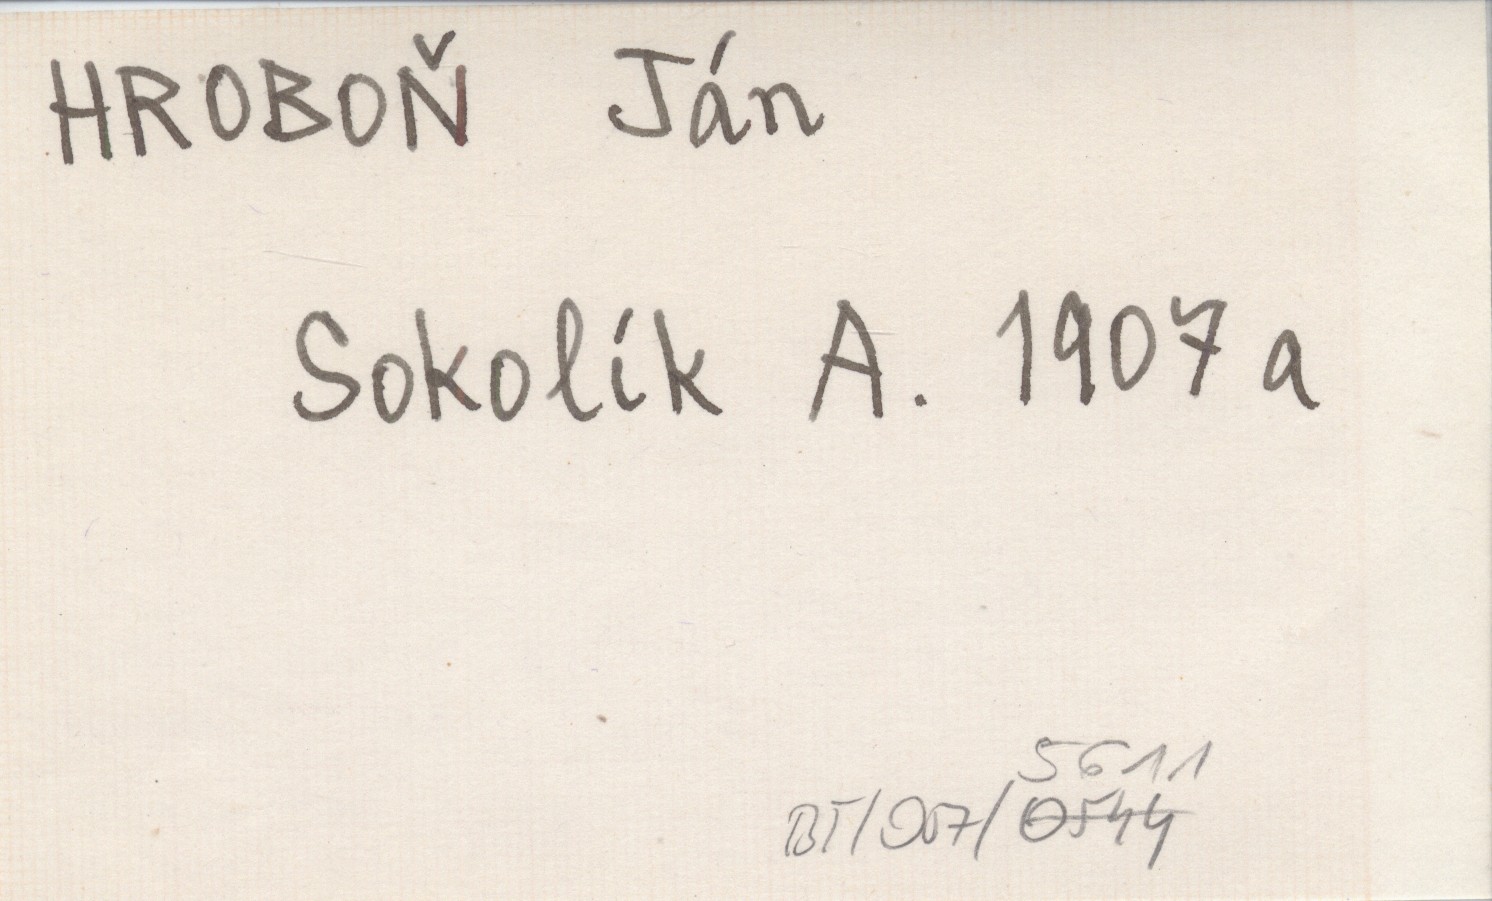 HROBOŇ Ján
Sokolík A. 1907 a
5611
BT/D57/0544